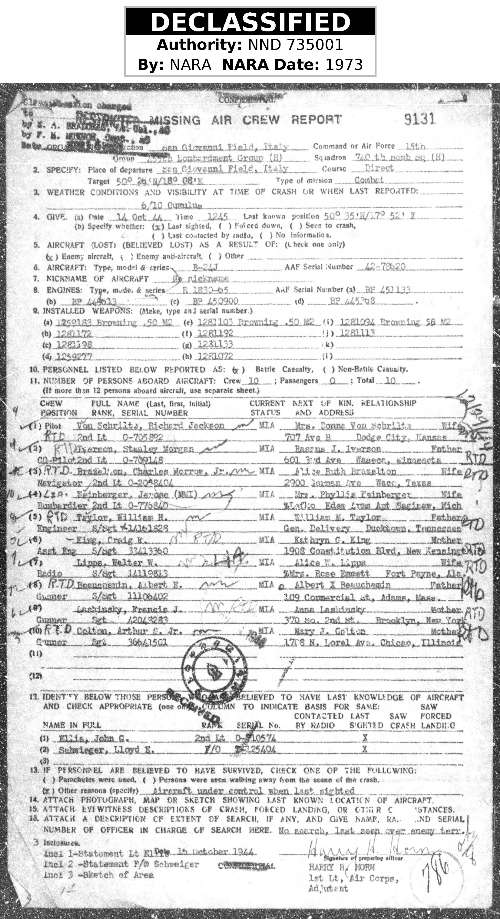 DECLASSIFIED
Authority: NND 735001
By: NARA NARA Date: 1973
CONFIDENTIAL
MISSING AIR CREW REPORT 9131
San Giovanni Field, Italy Command or Air Force 15th
Group Bombardment Group (H) Squadron
2. SPECIFY: Place of departure San Giovanni Field, Italy Course Direct
Target Type of mission Combat
3. WEATHER CONDITIONS AND VISIBILITY AT TIME OF CRASH OR WHEN LAST REPORTED:
6/10 Cumulus
4. GIVE: (a) Date 14 Oct 44 Time 1245 Last known position
(b) Specify whether: (x) Last sighted, ( ) Forced down, ( ) Seen to crash,
( ) Last contacted by radio, ( ) No information.
5. AIRCRAFT (LOST) (BELIEVED LOST) AS A RESULT OF: (Check one only)
(x) Enemy aircraft, ( ) Enemy anti-aircraft, ( ) Other
6. AIRCRAFT: Type, model & series B-24J AAF Serial Number 42-78620
7. NICKNAME OF AIRCRAFT No nickname
8. ENGINES: Type, mode. & series R 1830-65 AAF Serial Number (a) BP 451133
(b) (c) BP 450900 (d)
9. INSTALLED WEAPONS: (Make, type and serial number.)
(a) 1259183 Browning .50 M2 (e) 1281103 Browning .50 M2 (i) 1281094 Browning 50 M2
(b) 1281172 (f) 1281192 (j) 1281113
(c) 1281198 (g) 1281133 (k)
(d) 1259277 (h) 1281072 (l)
10. PERSONNEL LISTED BELOW REPORTED AS: (x) Battle Casualty, ( ) Non-Battle Casualty.
11. NUMBER OF PERSONS ABOARD AIRCRAFT: Crew 10 ; Passengers 0 ; Total 10
(If more than 12 persons aboard aircraft, use separate sheet.)
CREW FULL NAME (Last, first, Initial) CURRENT NEXT OF KIN, RELATIONSHIP
POSITION RANK, SERIAL NUMBER STATUS AND ADDRESS
(1) Pilot Von Schriltz, Richard Jackson MIA Mrs. Donna Von Schriltz Wife
RTD 2nd Lt O-705892 707 Ave B Dodge City, Kansas
(2) RTD Iverson, Stanley Morgan MIA Rasmus J. Iverson Father
Co-Pilot 2nd Lt O-709148 601 3rd Ave Waseca, Minnesota
(3) RTD. Brazelton, Charles Morrow, Jr. MIA Alice Ruth Brazelton Wife
Navigator 2nd Lt O-2058404 2900 Waco, Texas
(4) Feinberger, Jerome (NMI) MIA Mrs. Phyllis Feinberger Wife
Bombardier 2nd Lt O-776840 Apt Saginaw, Mich
(5) RTD Taylor, William H. MIA William N. Taylor Father
Engineer S/Sgt 14161828 Gen. Delivery Ducktown, Tennessee
(6) King, Craig W. RTD MIA Kathryn C. King Mother
Asst Eng S/Sgt 33413360 1908 Constitution Blvd, New Kensington
(7) Lipps, Walter W. MIA Alice W. Lipps Wife
Radio S/Sgt 34119823 %Mrs. Rose Emmett Fort Payne, Ala.
(8) RTD Beauchemin, Albert E. MIA Albert X Beauchemin Father
Gunner S/Sgt 11106402 109 Commercial St, Adams, Mass.
(9) Lashinsky, Francis J. MIA Anna Lashinsky Mother
Gunner Sgt 42043283 370 So. 2nd St. Brooklyn, New York
(10) RTD Colton, Arthur S. Jr. MIA Mary J. Colton Mother
Gunner Sgt 36641501 1718 N. Lorel Ave. Chicago, Illinois
(11)
(12)
12. IDENTIFY BELOW THOSE PERSONS BELIEVED TO HAVE LAST KNOWLEDGE OF AIRCRAFT
AND CHECK APPROPRIATE COLUMN TO INDICATE BASIS FOR SAME:
CONTACTED LAST SAW SAW FORCED
NAME IN FULL RANK SERIAL No. BY RADIO SIGHTED CRASH LANDING
(1) Ellis, John G. 2nd Lt O-710574 X
(2) Schweiger, Lloyd E. F/O T-125404 X
(3)
13. IF PERSONNEL ARE BELIEVED TO HAVE SURVIVED, CHECK ONE OF THE FOLLOWING:
( ) Parachutes were used, ( ) Persons were seen walking away from the scene of the crash.
(x) Other reasons (specify) Aircraft under control when last sighted
14. ATTACH PHOTOGRAPH, MAP OR SKETCH SHOWING LAST KNOWN LOCATION OF AIRCRAFT.
15. ATTACH EYEWITNESS DESCRIPTIONS OF CRASH, FORCED LANDING, OR OTHER
16. ATTACH A DESCRIPTION OF EXTENT OF SEARCH, IF ANY, AND GIVE NAME, RANK AND SERIAL
NUMBER OF OFFICER IN CHARGE OF SEARCH HERE. No search, last seen over enemy terr.
3 Inclosures.
Incl 1-Statement Lt Ellis Date 15 October 1944
Incl 2 -Statement F/O Schweiger CONFIDENTIAL
Incl 3 -Sketch of Area
Harry H. Horn
Signature of preparing officer
HARRY H. HORN
1st Lt, Air Corps,
Adjutant
786